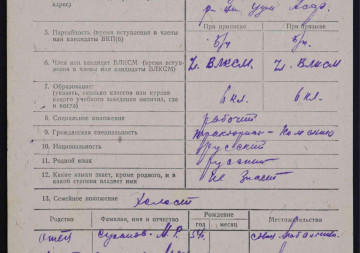 адрес)
При приписке
При призыве
5. Партийность (время вступления в члены
или кандидаты ВКП(б)
б/п б/п.
6. Член или кандидат ВЛКСМ (время вступ-
ления в члены или кандидаты ВЛКСМ)
Чл. ВЛКСМ Чл. ВЛКСМ
7. Образование:
(указать, сколько классов или курсов
какого учебного заведения окончил, где
и когда)
6 кл. 6 кл.
8. Социальное положение
рабочий
9. Гражданская специальность
10. Национальность
русский
11. Родной язык
русский
12. Какие языки знает, кроме родного, и в
какой степени владеет ими
не знает
13. Семейное положение Холост
Родство Фамилия, имя и отчество Рождение Местожительство
год месяц
отец